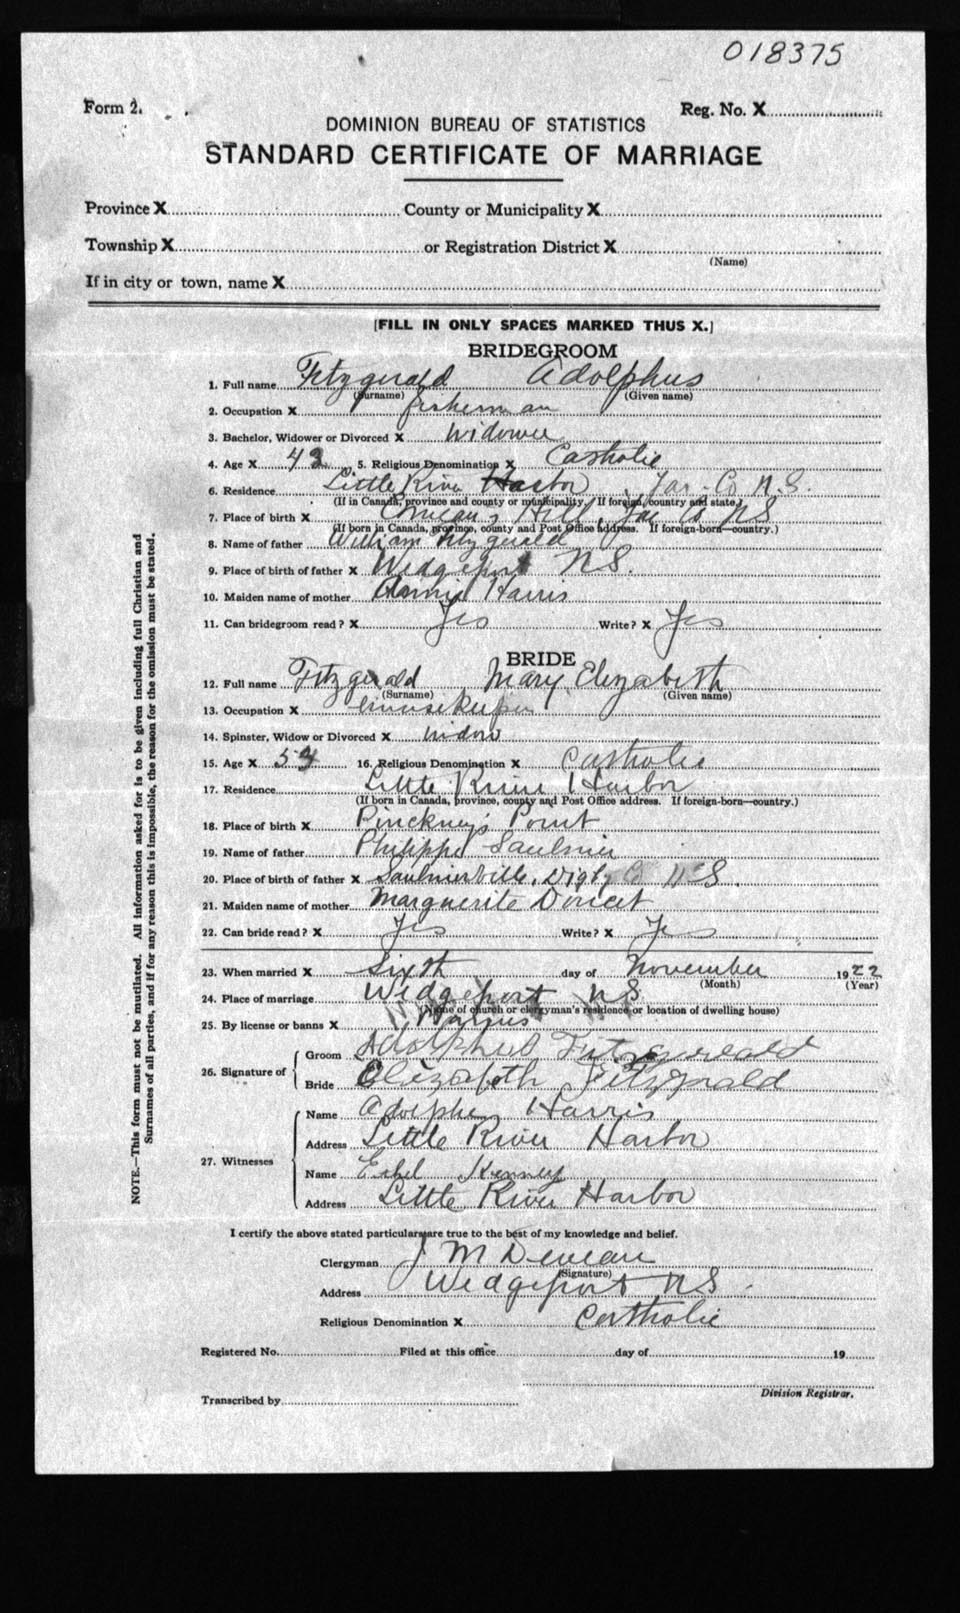 018375
Form 2.
Reg. No. X
DOMINION BUREAU OF STATISTICS
STANDARD CERTIFICATE OF MARRIAGE
Province X County or Municipality X
Township X or Registration District X
(Name)
If in city or town, name X
[FILL IN ONLY SPACES MARKED THUS X.]
BRIDEGROOM
1. Full name Fitzgerald Adolphus
(Surname) (Given name)
2. Occupation X fisherman
3. Bachelor, Widower or Divorced X Widower
4. Age X 5. Religious Denomination X Catholic
6. Residence Little River Harbor Yar. Co N.S.
(If in Canada, province and county or municipality. If foreign, country and state)
7. Place of birth X Comeau's Hill, Yar Co NS
(If born in Canada, province, county and Post Office address. If foreign-born—country.)
8. Name of father William Fitzgerald
9. Place of birth of father X Wedgeport N.S.
10. Maiden name of mother Annie Harris
11. Can bridegroom read? X Yes Write? X Yes
BRIDE
12. Full name Fitzgerald Mary Elizabeth
(Surname) (Given name)
13. Occupation X housekeeper
14. Spinster, Widow or Divorced X widow
15. Age X 16. Religious Denomination X Catholic
17. Residence Little River Harbor
(If born in Canada, province, county and Post Office address. If foreign-born—country.)
18. Place of birth X Pinckney's Point
19. Name of father Philippe Saulnier
20. Place of birth of father X Saulnierville, Digby Co N.S.
21. Maiden name of mother Marguerite Doucet
22. Can bride read? X Yes Write? X Yes
23. When married X Sixth day of November 1922
(Month) (Year)
24. Place of marriage Wedgeport N.S.
(Name of church or clergyman's residence or location of dwelling house)
25. By license or banns X Banns
26. Signature of
Groom Adolphus Fitzgerald
Bride Elizabeth Fitzgerald
27. Witnesses
Name Adolphe Harris
Address Little River Harbor
Name Ethel Kenney
Address Little River Harbor
I certify the above stated particulars are true to the best of my knowledge and belief.
Clergyman J M Deveau
(Signature)
Address Wedgeport N.S.
Religious Denomination X Catholic
Registered No. Filed at this office day of 19
Division Registrar.
Transcribed by
NOTE.—This form must not be mutilated. All information asked for is to be given including full Christian and
Surnames of all parties, and if for any reason this is impossible, the reason for the omission must be stated.